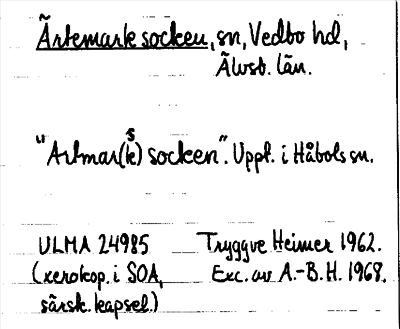 Ärtemark socken, sn, Vedbo hd,
Älvsb. län.
"Artmar(k)s socken". Uppt. i Håbols sn.
ULMA 24985 Tryggve Heimer 1962.
(xerokop. i SOA, Exc. av A.-B. H. 1968.
särsk. kapsel.)